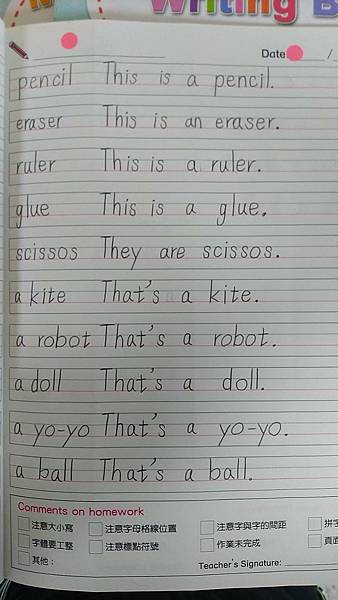 Writing B
Date: /
pencil This is a pencil.
eraser This is an eraser.
ruler This is a ruler.
glue This is a glue.
scissos They are scissos.
a kite That's a kite.
a robot That's a robot.
a doll That's a doll.
a yo-yo That's a yo-yo.
a ball That's a ball.
Comments on homework
注意大小寫 注意字母格線位置 注意字與字的間距 拼字
字體要工整 注意標點符號 作業未完成 頁面
其他：
Teacher's Signature: